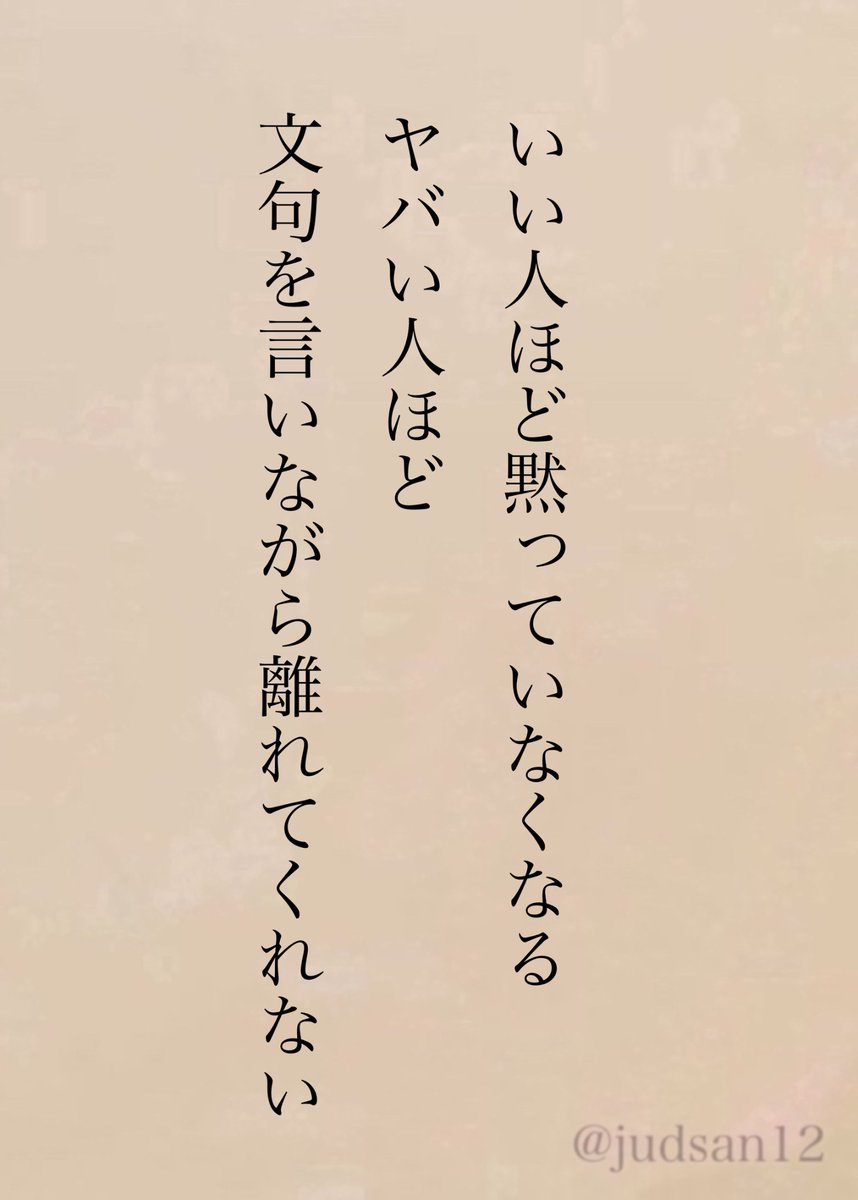 いい人ほど黙っていなくなる
ヤバい人ほど
文句を言いながら離れてくれない
@judsan12